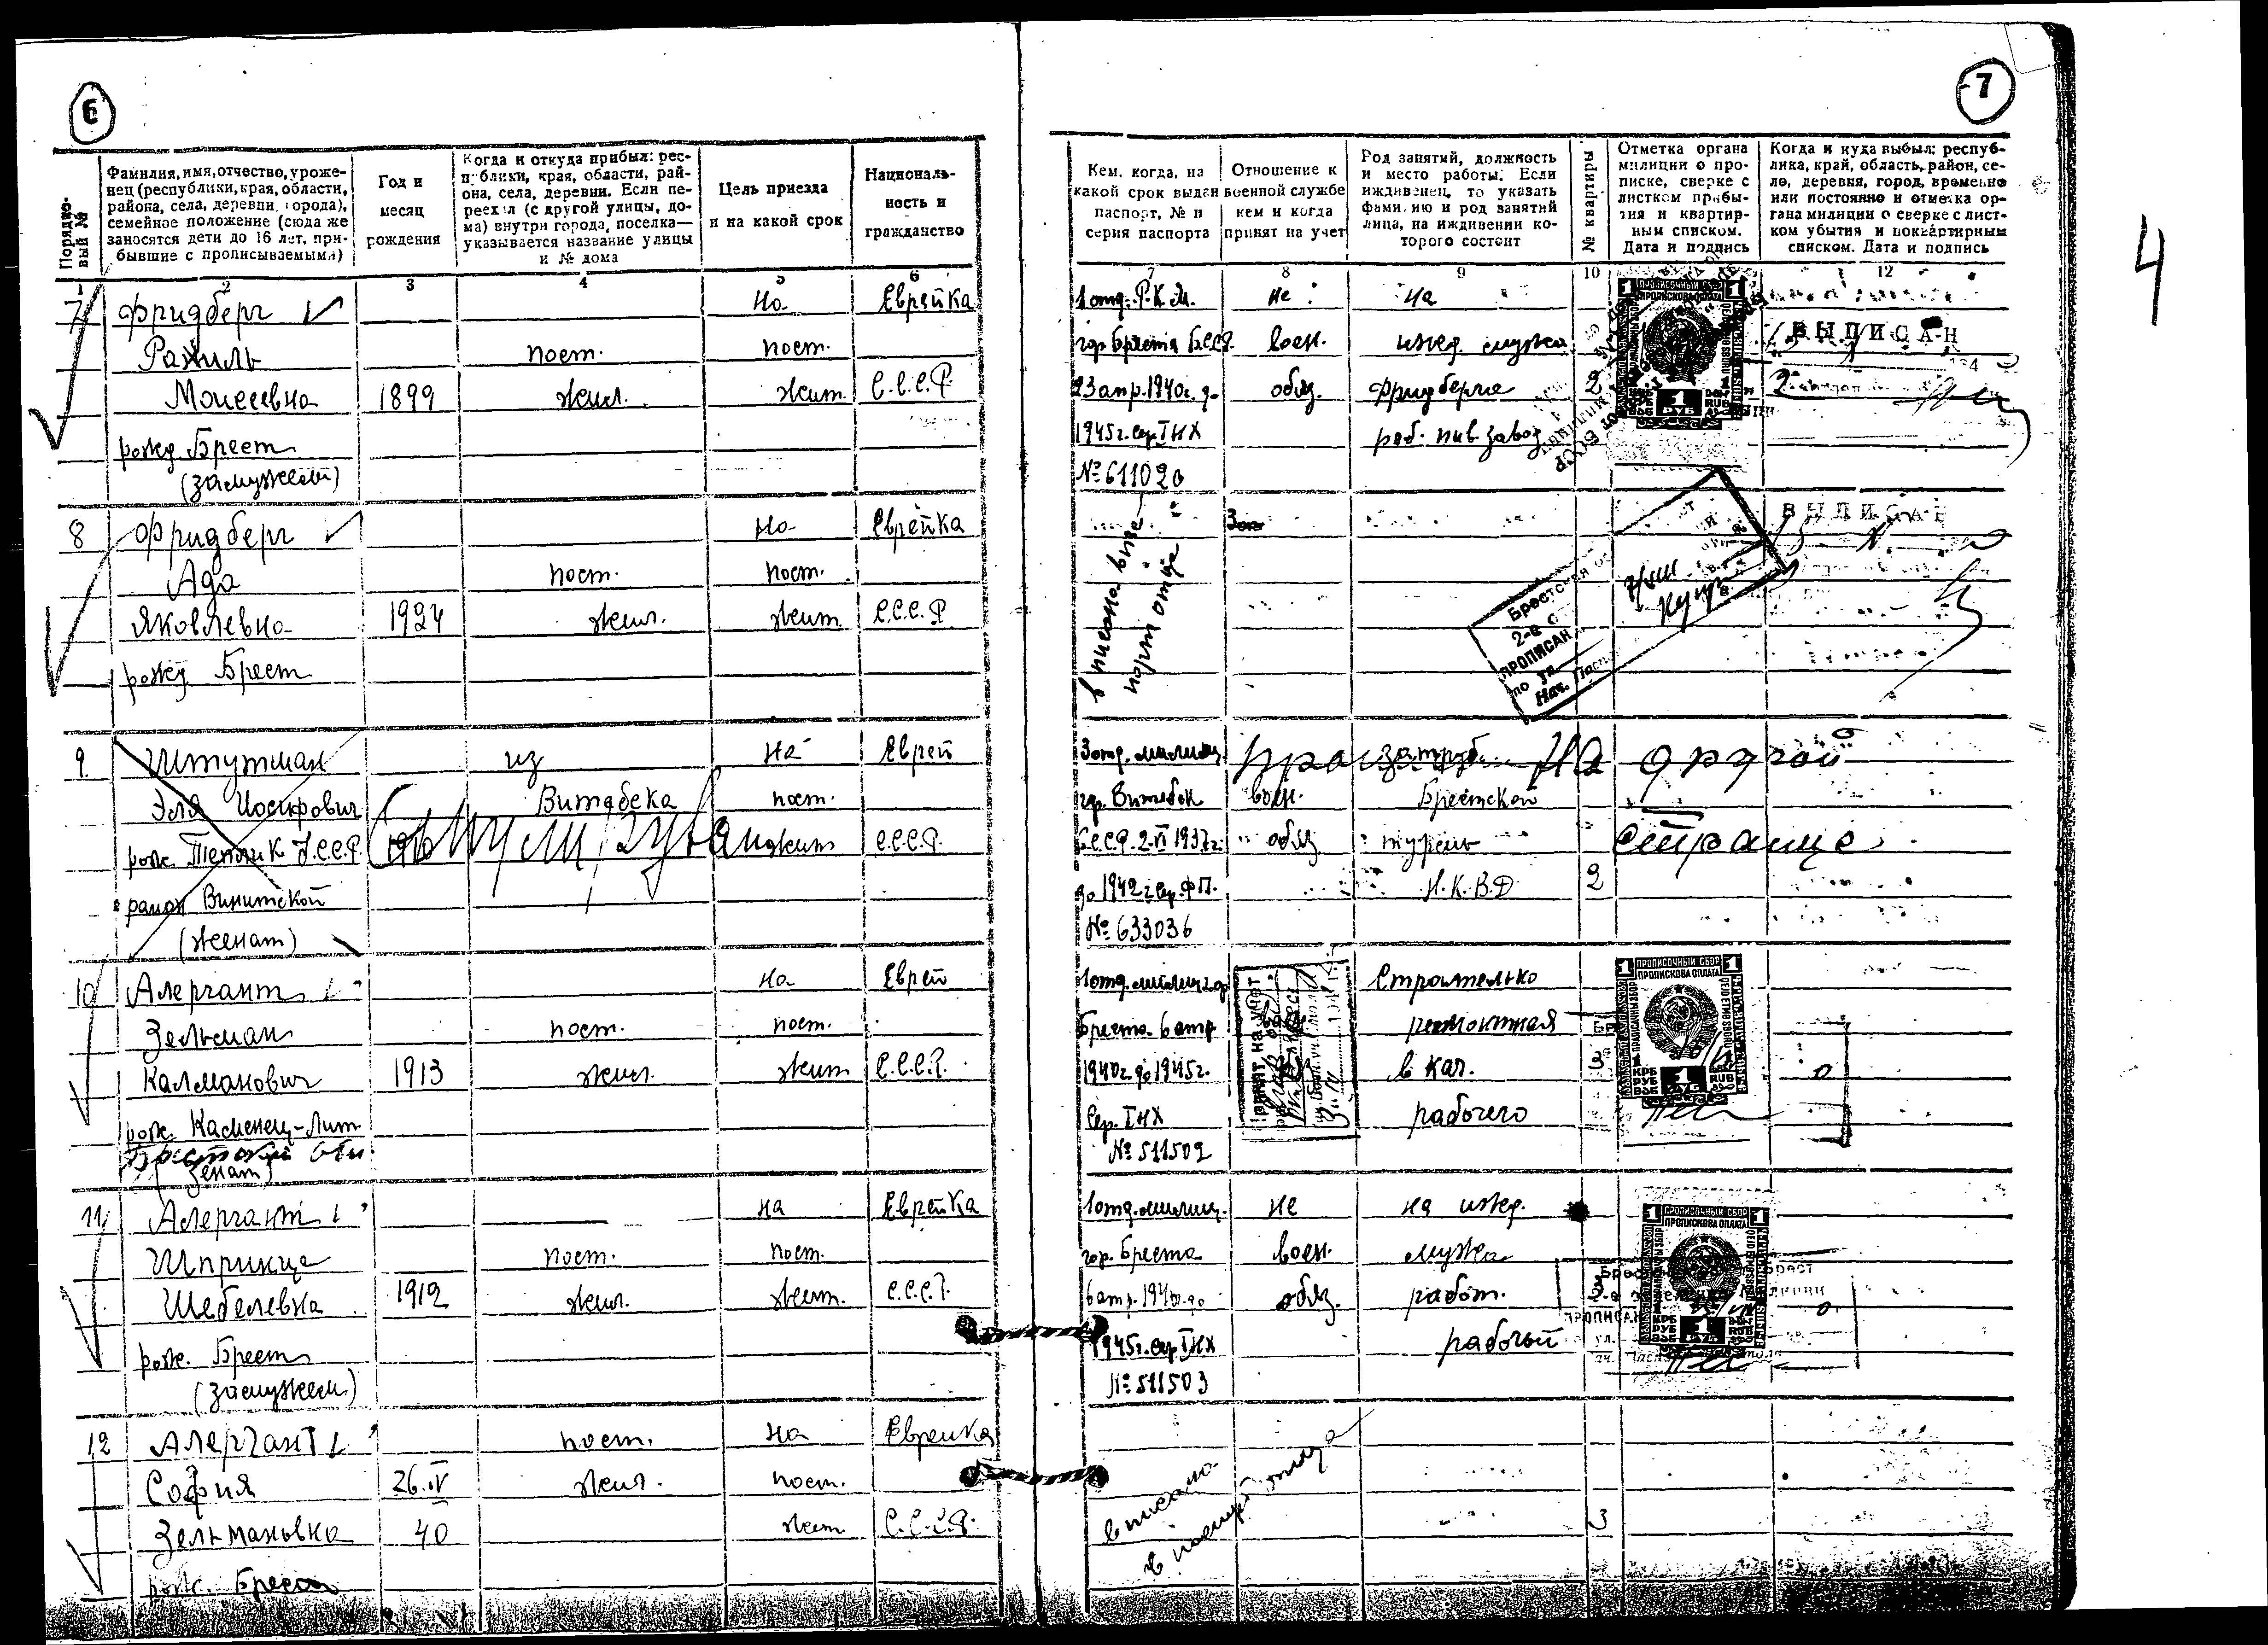 6
7
4
Порядковый №
Фамилия, имя, отчество, уроженец (республики, края, области, района, села, деревни, города), семейное положение (сюда же заносятся дети до 16 лет, прибывшие с прописываемыми)
Год и месяц рождения
Когда и откуда прибыл: республики, края, области, района, села, деревни. Если переехал (с другой улицы, дома) внутри города, поселка— указывается название улицы и № дома
Цель приезда и на какой срок
Националь-ность и гражданство
Кем, когда, на какой срок выдан паспорт, № и серия паспорта
Отношение к военной службе кем и когда принят на учет
Род занятий, должность и место работы. Если иждивенец, то указать фамилию и род занятий лица, на иждивении которого состоит
№ квартиры
Отметка органа милиции о прописке, сверке с листком прибытия и квартирным списком. Дата и подпись
Когда и куда выбыл: республика, край, область, район, село, деревня, город, временно или постоянно и отметка органа милиции о сверке с листком убытия и поквартирным списком. Дата и подпись
2 3 4 5 6 7 8 9 10 12
7 Фридберг На Еврейка 1 отд. Р.К.М. не на
Рахиль пост. пост. гор Бреста БССР. воен. ижд. мужа ВЫПИСАН
Моисеевна 1899 жил. жит. С.С.С.Р. 23 апр. 1940г. до обяз. Фридберга 2
рожд Брест 1945г. сер. ТНХ раб. пив. завод
(замужем) № 611020
8 Фридберг На Еврейка ВЫПИСАН
Ада пост. пост.
Яковлевна 1924 жил. жит С.С.С.Р
рожд Брест
вписана в пас-
порт отца
Брестская
2-е
ПРОПИСАН
по ул.
Нач. Пасп.
9 Штутман из На Еврей 3 отд. милиц на другой
Эля Иосифович Витебска пост. гр. Витебск воен. Брестской
рож. Теплик У.С.С.Р. жит С.С.С.Р. Б.С.С.Р. 2.VI 1937г. обяз тюрьмы странице
район Винитской до 1942г Сер. ФП. Н.К.В.Д 2
(женат) № 633036
10 Алергант на Еврей 1 отд. милиц гор Строительно
Зельман пост. пост. Бреста 6 апр ремонтная
Калманович 1913 жил. жит С.С.С.Р. 1940г. до 1945г. в кач. 3
рож. Каменец-Лит Сер. ТНХ рабочего
женат) № 511502
Принят на учет
11 Алергант на Еврейка 1 отд. милиц. не на ижд.
Шпринца пост. пост. гор. Бреста воен. мужа
Шебелевна 1912 жил. жит. С.С.С.Р. 6 апр. 1940г. до обяз. работ. 3
рож. Брест 1945г. сер ТНХ рабочий
(замужем) № 511503
12 Алергант пост. на Еврейка
София 26.IV жил. пост.
Зельмановна 40 жит С.С.С.Р. 3
рож. Брест
вписана
в паспорт отца
ПРОПИСОЧНЫЙ СБОР
ПРОПИСКОВА ОПЛАТА
1 РУБ
ПРОПИСОЧНЫЙ СБОР
ПРОПИСКОВА ОПЛАТА
1 РУБ
ПРОПИСОЧНЫЙ СБОР
ПРОПИСКОВА ОПЛАТА
1 РУБ
ПРОПИСАН